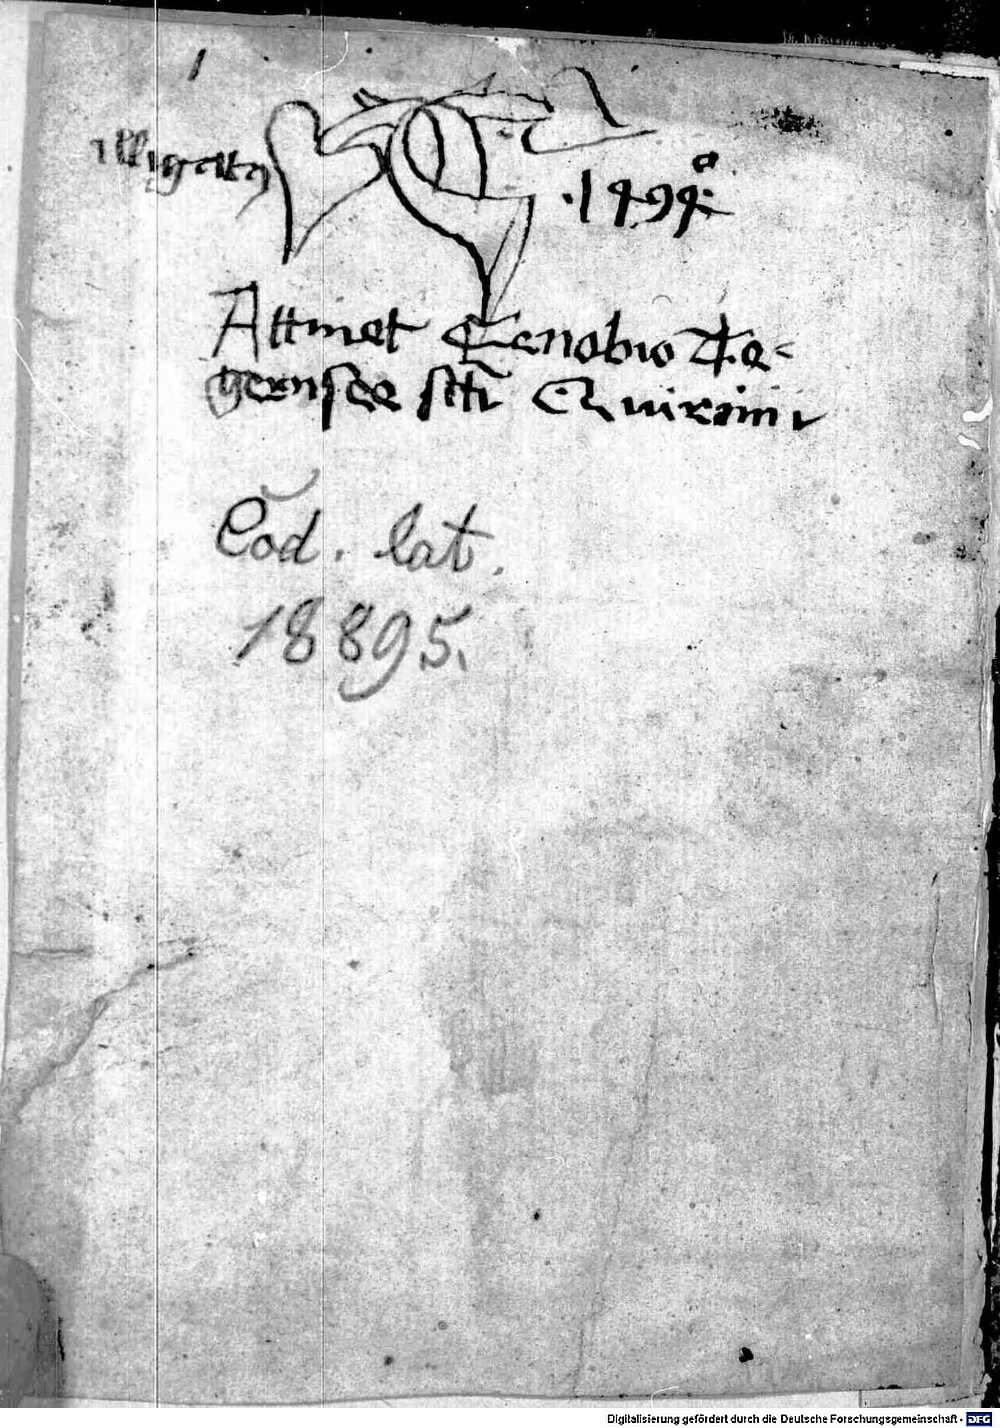 illigatus
.1494.
Attinet Cenobio Te-
gernsee scti Quirini
Cod. lat.
18895.
Digitalisierung gefördert durch die Deutsche Forschungsgemeinschaft - DFG